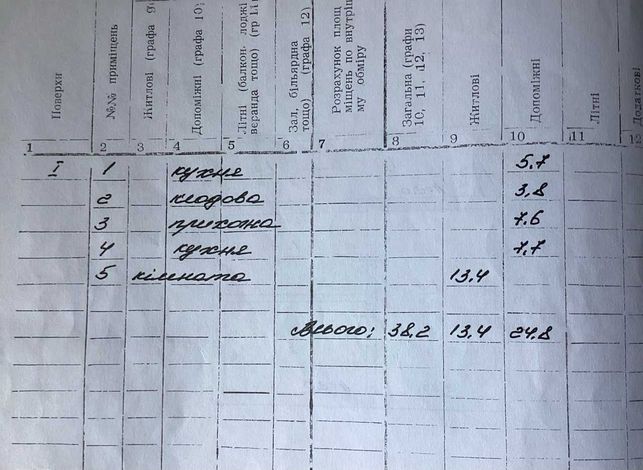 Поверхи
№№ приміщень
Житлові (графа 9)
Допоміжні (графа 10)
Літні (балкон, лоджі
веранда тощо) (гр 11
Зал, більярдна
тощо) (графа 12)
Розрахунок площ
міщень по внутріш
му обміру
Загальна (графи
10, 11, 12, 13)
Житлові
Допоміжні
Літні
Додаткові
1 2 3 4 5 6 7 8 9 10 11 12
I 1 кухня 5,7
2 кладова 3,8
3 прихожа 7,6
4 кухня 7,7
5 кімната 13,4
Всього: 38,2 13,4 24,8